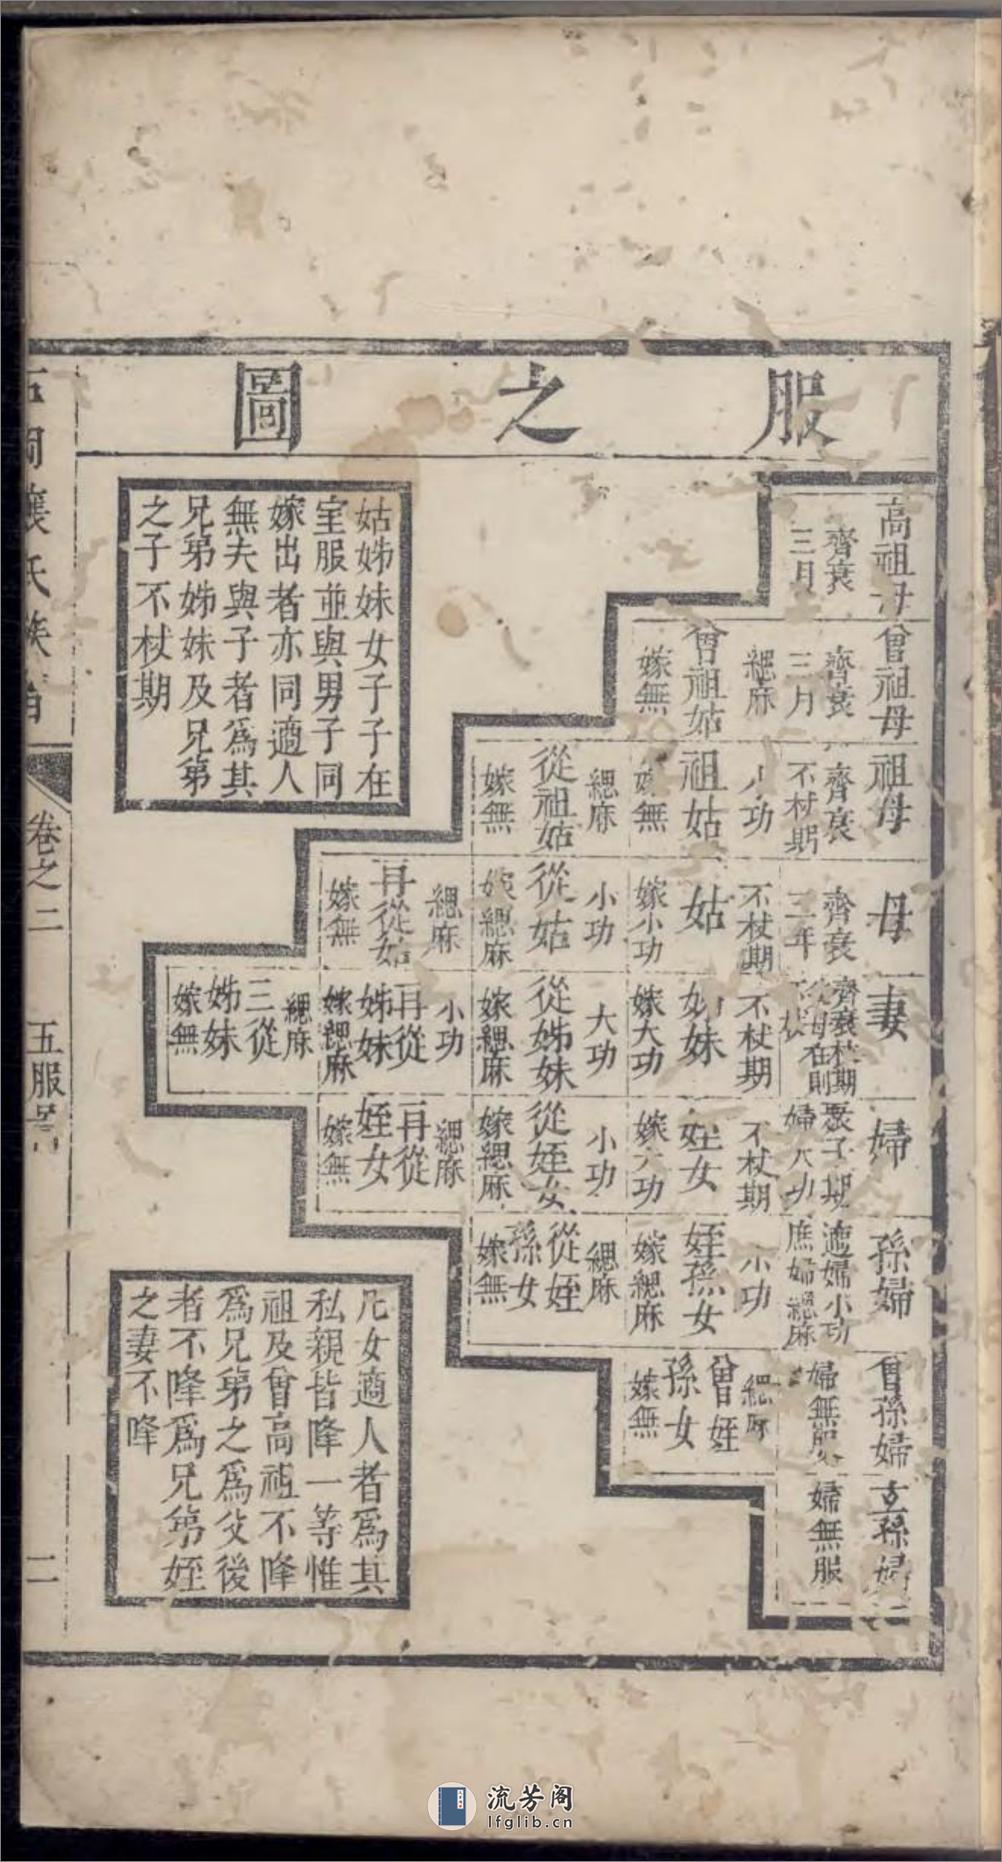 服之圖
高祖母
齊衰
三月
曾祖母
齊衰
三月
緦麻
曾祖姑
嫁無
祖母
齊衰
不杖期
小功
祖姑
嫁無
緦麻
從祖姑
嫁無
母
齊衰
三年
不杖期
姑
嫁小功
小功
從姑
嫁緦麻
緦麻
再從姑
嫁無
妻
齊衰杖期
父母在則
不杖
不杖期
姊妹
嫁大功
大功
從姊妹
嫁緦麻
小功
再從
姊妹
嫁緦麻
緦麻
三從
姊妹
嫁無
婦
眾子期
婦大功
不杖期
姪女
嫁大功
小功
從姪女
嫁緦麻
緦麻
再從
姪女
嫁無
孫婦
適婦小功
庶婦緦麻
小功
姪孫女
嫁緦麻
緦麻
從姪
孫女
嫁無
曾孫婦
婦無服
緦麻
曾姪
孫女
嫁無
玄孫婦
婦無服
姑姊妹女子子在
室服並與男子同
嫁出者亦同適人
無夫與子者爲其
兄弟姊妹及兄弟
之子不杖期
凡女適人者爲其
私親皆降一等惟
祖及曾高祖不降
爲兄弟之爲父後
者不降爲兄弟姪
之妻不降
氏族
卷之二
五服
二
流芳阁
lfglib.cn